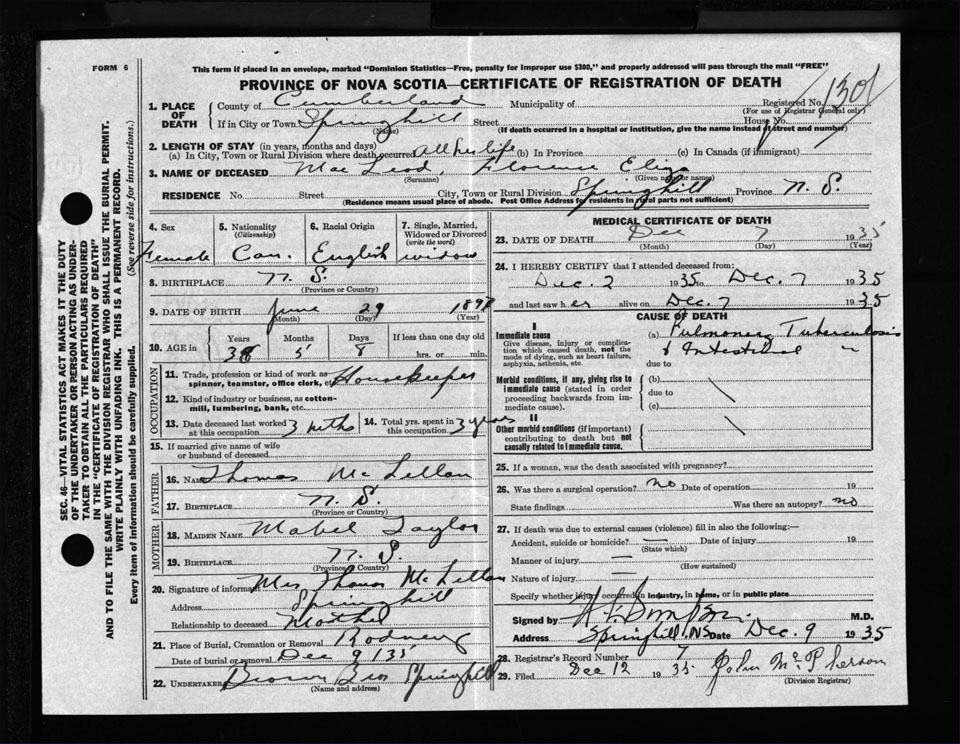 FORM 6
This form if placed in an envelope, marked "Dominion Statistics—Free, penalty for improper use $300," and properly addressed will pass through the mail "FREE"
PROVINCE OF NOVA SCOTIA—CERTIFICATE OF REGISTRATION OF DEATH
1. PLACE OF DEATH
County of Cumberland Municipality of Registered No. 1301
(For use of Registrar General only)
If in City or Town Springhill Street House No.
(Name) (If death occurred in a hospital or institution, give the name instead of street and number)
2. LENGTH OF STAY (in years, months and days)
(a) In City, Town or Rural Division where death occurred All her life (b) In Province (c) In Canada (if immigrant)
3. NAME OF DECEASED Mac Leod, Florence Eliz
(Surname) (Given name or names)
RESIDENCE No. Street City, Town or Rural Division Springhill Province N. S.
(Residence means usual place of abode. Post Office Address for residents in rural parts not sufficient)
4. Sex Female
5. Nationality (Citizenship) Can.
6. Racial Origin English
7. Single, Married, Widowed or Divorced (write the word) widow
8. BIRTHPLACE N. S.
(Province or Country)
9. DATE OF BIRTH June 29
(Month) (Day) (Year)
10. AGE in Years Months Days If less than one day old
5 8 hrs. or min.
OCCUPATION
11. Trade, profession or kind of work as spinner, teamster, office clerk, etc. Housekeeper
12. Kind of industry or business, as cotton-mill, lumbering, bank, etc.
13. Date deceased last worked at this occupation 3 mths
14. Total yrs. spent in this occupation 3 years
15. If married give name of wife or husband of deceased
FATHER
16. NAME Thomas McLellan
17. BIRTHPLACE N. S.
(Province or Country)
MOTHER
18. MAIDEN NAME Mabel Taylor
19. BIRTHPLACE N. S.
(Province or Country)
20. Signature of informant Mrs Thomas McLellan
Address Springhill
Relationship to deceased Mother
21. Place of Burial, Cremation or Removal Rodney
Date of burial or removal Dec 9 135
22. UNDERTAKER Brown Bros Springhill
(Name and address)
MEDICAL CERTIFICATE OF DEATH
23. DATE OF DEATH Dec 7 1935
(Month) (Day) (Year)
24. I HEREBY CERTIFY that I attended deceased from:
Dec. 2 1935 to Dec. 7 1935
and last saw her alive on Dec. 7 1935
CAUSE OF DEATH
I
Immediate cause
Give disease, injury or complication which caused death, not the mode of dying, such as heart failure, asphyxia, asthenia, etc.
(a) Pulmonary Tuberculosis
& Intestinal "
due to
Morbid conditions, if any, giving rise to immediate cause (stated in order proceeding backwards from immediate cause).
(b)
due to
(c)
II
Other morbid conditions (if important) contributing to death but not causally related to immediate cause.
25. If a woman, was the death associated with pregnancy?
26. Was there a surgical operation? no Date of operation 19
State findings Was there an autopsy? no
27. If death was due to external causes (violence) fill in also the following:—
Accident, suicide or homicide? — Date of injury 19
(State which)
Manner of injury —
(How sustained)
Nature of injury —
Specify whether injury occurred in industry, in home, or in public place
Signed by M.D.
Address Springhill, NS Date Dec. 9 1935
28. Registrar's Record Number 7
29. Filed Dec 12 1935 John McPherson
(Division Registrar)
SEC. 46—VITAL STATISTICS ACT MAKES IT THE DUTY
OF THE UNDERTAKER OR PERSON ACTING AS UNDER-
TAKER TO OBTAIN ALL THE PARTICULARS REQUIRED
IN THE "CERTIFICATE OF REGISTRATION OF DEATH"
AND TO FILE THE SAME WITH THE DIVISION REGISTRAR WHO SHALL ISSUE THE BURIAL PERMIT.
WRITE PLAINLY WITH UNFADING INK. THIS IS A PERMANENT RECORD.
Every item of information should be carefully supplied. (See reverse side for instructions.)